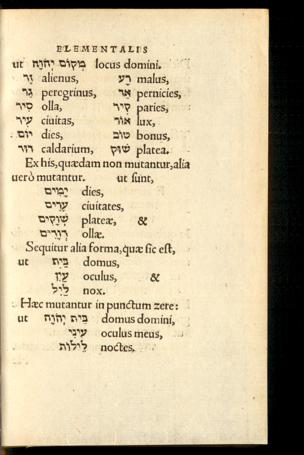 ELEMENTALIS
ut מְקוֹם יְהוָה locus domini.
זָר alienus, רָע malus,
גֵּר peregrinus, אֵד pernicies,
סִיר olla, קִיר paries,
עִיר ciuitas, אוֹר lux,
יוֹם dies, טוֹב bonus,
דוּד caldarium, שׁוּק platea.
Ex his, quædam non mutantur, alia
uerò mutantur. ut sunt,
יָמִים dies,
עָרִים ciuitates,
שְׁוָקִים plateæ, &
דְוָדִים ollæ.
Sequitur alia forma, quæ sic est,
ut בַּיִת domus,
עַיִן oculus, &
לַיִל nox.
Hæc mutantur in punctum zere:
ut בֵּית יְהוָה domus domini,
עֵינִי oculus meus,
לֵילוֹת noctes.